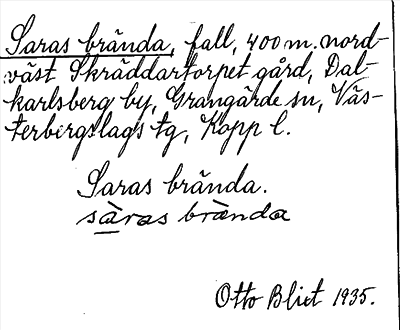 Saras brända, fall, 400 m. nord-
väst Skräddartorpet gård, Dal-
karlsberg by, Grangärde sn, Väs-
terbergslags tg, Kopp l.
Saras brända.
sàras brànda
Otto Blixt 1935.